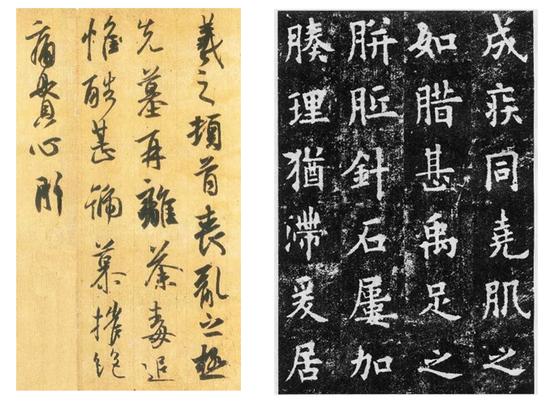 羲之頓首喪亂之極
先墓再離荼毒追
惟酷甚號慕摧絕
痛貫心肝
成疾同堯肌之
如腊甚禹足之
胼胝針石屢加
腠理猶滯爰居